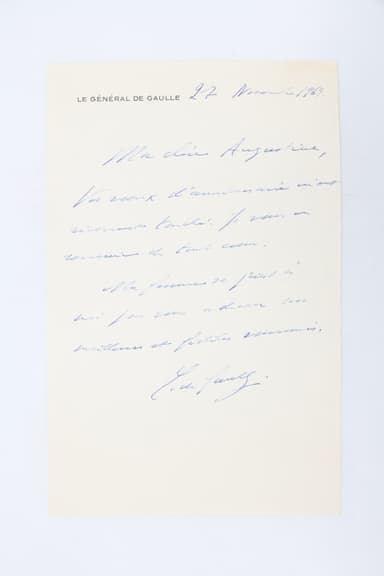 LE GÉNÉRAL DE GAULLE 27 Novembre 1969.
Ma chère Augustine,
Vos vœux d'anniversaire m'ont
vivement touché. Je vous en
remercie de tout cœur.
Ma femme se joint à
moi pour vous adresser nos
meilleurs et fidèles souvenirs.
C. de Gaulle.